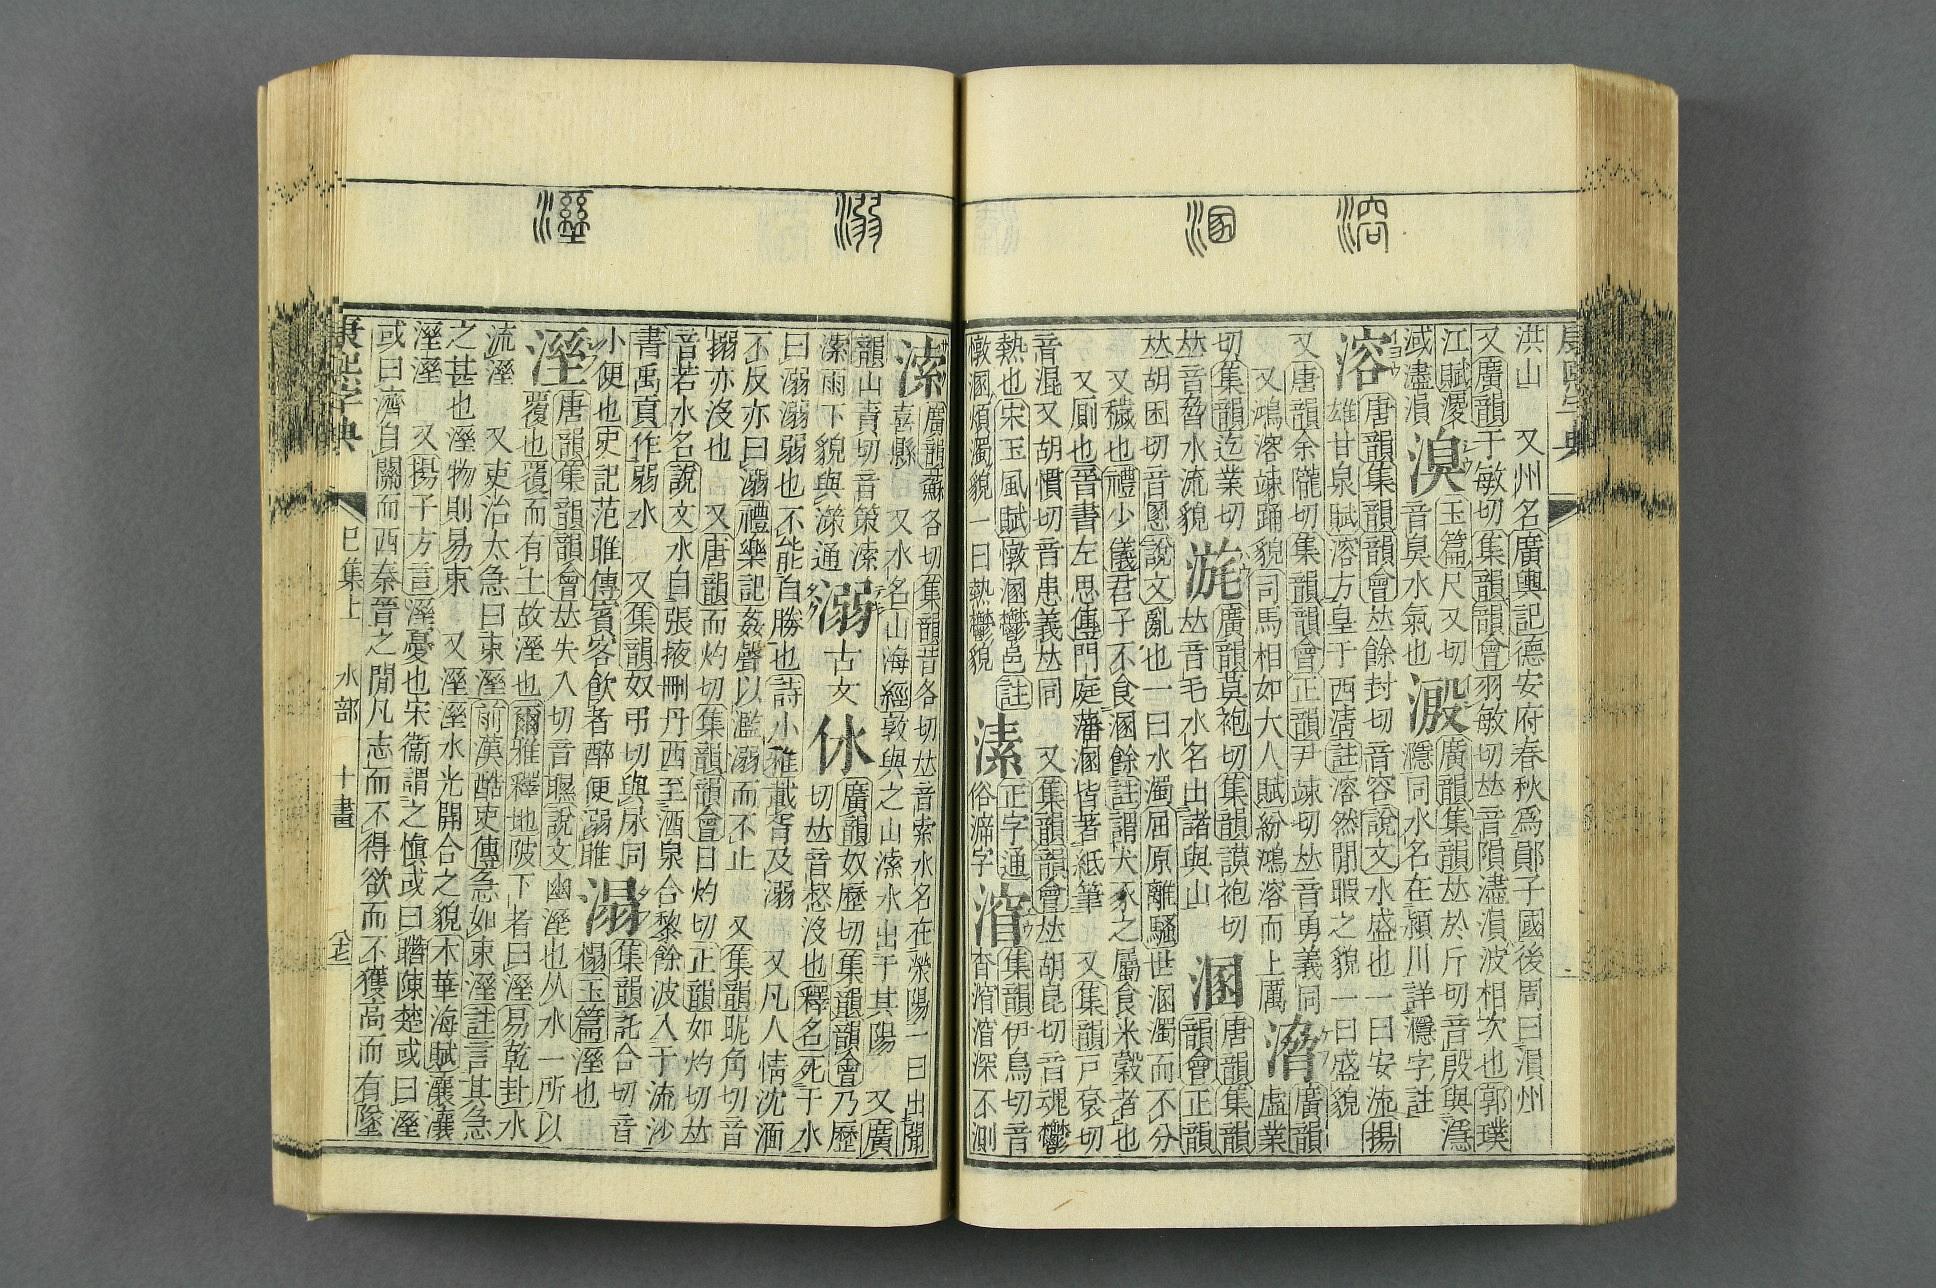 溶
溷
洪山 又州名廣輿記德安府春秋爲鄖子國後周曰溳州
又廣韻于敏切集韻韻會羽敏切𠀤音隕濜溳波相次也郭璞
江賦溭淢濜溳
溴玉篇尺又切音臭水氣也
溵廣韻集韻𠀤於斤切音殷與濦濦同水名在潁川詳濦字註
溶唐韻集韻韻會𠀤餘封切音容說文水盛也一曰安流揚雄甘泉賦溶方皇于西淸註溶然閒暇之貌一曰盛貌
又唐韻余隴切集韻韻會正韻尹竦切𠀤音勇義同
又鴻溶竦踊貌司馬相如大人賦紛鴻溶而上厲
廣韻虛業切集韻迄業切𠀤音脅水流貌
廣韻莫袍切集韻謨袍切𠀤音毛水名出諸與山
溷唐韻集韻韻會正韻𠀤胡困切音慁說文亂也一曰水濁屈原離騷世溷濁而不分
又穢也禮少儀君子不食溷餘註謂犬豕之屬食米穀者也
又廁也晉書左思傳門庭藩溷皆著紙筆 又集韻戸袞切
音混又胡慣切音患義𠀤同 又集韻韻會𠀤胡昆切音魂鬱
熱也宋玉風賦憞溷鬱邑註憞溷煩濁貌一曰熱鬱貌
正字通俗字
集韻伊鳥切音杳深不測
溺
溼
溹廣韻蘇各切集韻昔各切𠀤音索水名在滎陽一曰出聞喜縣 又水名山海經敦與之山溹水出于其陽 又廣
韻山責切音策溹溹雨下貌與漺通
溺古文㲻廣韻奴歷切集韻韻會乃歷切𠀤音惄沒也釋名死于水
曰溺溺弱也不能自勝也詩小雅載胥及溺 又凡人情沈湎
不反亦曰溺禮樂記姦聲以濫溺而不止 又集韻昵角切音
搦亦沒也 又唐韻而灼切集韻韻會日灼切正韻如灼切𠀤
音若水名說文水自張掖刪丹西至酒泉合黎餘波入于流沙
書禹貢作弱水 又集韻奴弔切與尿同
小便也史記范睢傳賓客飲者醉便溺睢
溻集韻託合切音榻玉篇溼也
溼唐韻集韻韻會𠀤失入切音聭說文幽溼也从水一所以
覆也覆而有土故溼也爾雅釋地陂下者曰溼易乾封水
流溼 又吏治太急曰束溼前漢酷吏傳急如束溼註言其急
之甚也溼物則易束 又溼溼水光開合之貌木華海賦瀼瀼
溼溼 又揚子方言溼憂也宋衞謂之愼或曰𣋞陳楚或曰溼
或曰濟自關而西秦晉之閒凡志而不得欲而不獲高而有墜
康熙字典
巳集上 水部 十畫